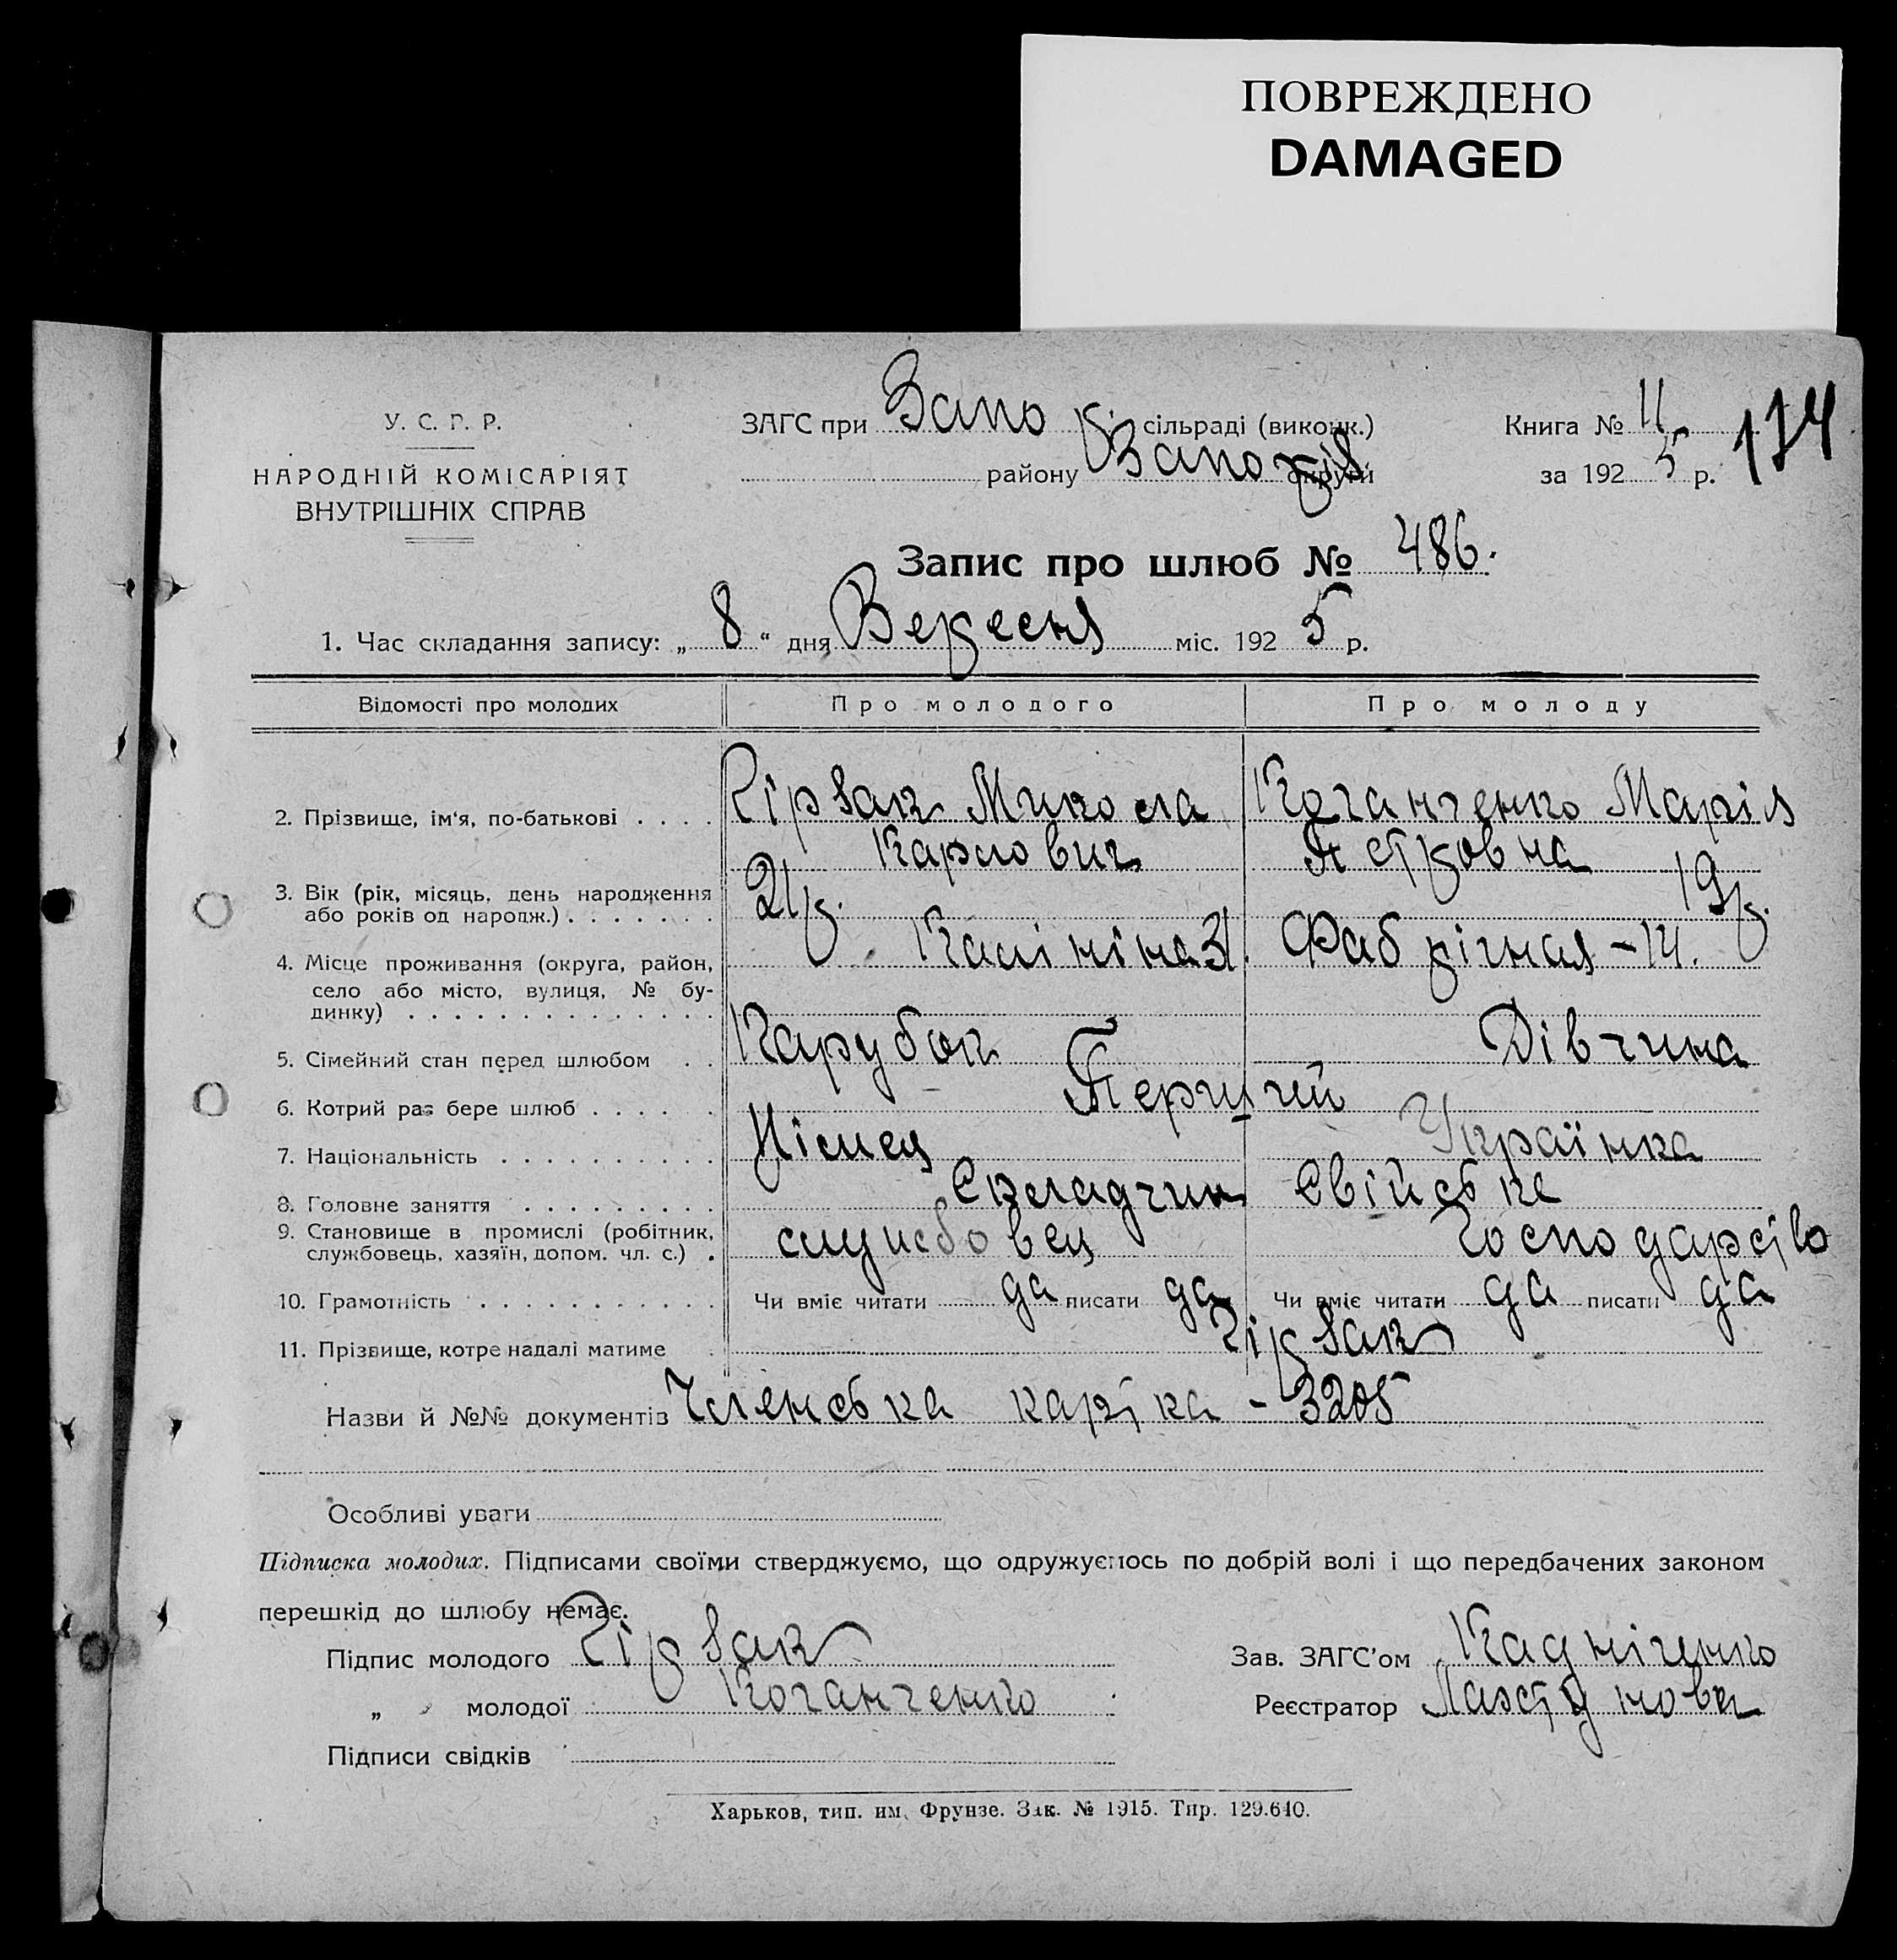 ПОВРЕЖДЕНО
DAMAGED
У. С. Р. Р.
НАРОДНІЙ КОМІСАРІЯТ
ВНУТРІШНІХ СПРАВ
ЗАГС при Запо сільраді (виконк.)
району Запоріз округи
Книга № 11 174
за 1925 р.
Запис про шлюб № 486.
1. Час складання запису: „ 8 “ дня Вересня міс. 1925 р.
Відомості про молодих Про молодого Про молоду
2. Прізвище, ім'я, по-батькові . . . . Гірзак Микола Коганченко Марія
Карлович Петровна
3. Вік (рік, місяць, день народження
або років од народж.) . . . . . . . 21 р. 19 р.
4. Місце проживання (округа, район, Калініна 31. Фабрічная - 14.
село або місто, вулиця, № бу-
динку) . . . . . . . . . . . . . .
5. Сімейний стан перед шлюбом . . Парубок Дівчина
6. Котрий раз бере шлюб . . . . . Перший
7. Національність . . . . . . . . . . Німец Українка
8. Головне заняття . . . . . . . . . Складчик Свійське
9. Становище в промислі (робітник,
службовець, хазяїн, допом. чл. с.) . службовец Господарство
10. Грамотність . . . . . . . . . . . Чи вміє читати да писати да Чи вміє читати да писати да
11. Прізвище, котре надалі матиме . Гірзак
Назви й №№ документів Членська картка - 3205
Особливі уваги
Підписка молодих. Підписами своїми стверджуємо, що одружуємось по добрій волі і що передбачених законом
перешкід до шлюбу немає.
Підпис молодого Гірзак Зав. ЗАГС'ом Кадніченко
„ молодої Коганченко Реєстратор
Підписи свідків
Харьков, тип. им. Фрунзе. Зак. № 1915. Тир. 129.640.